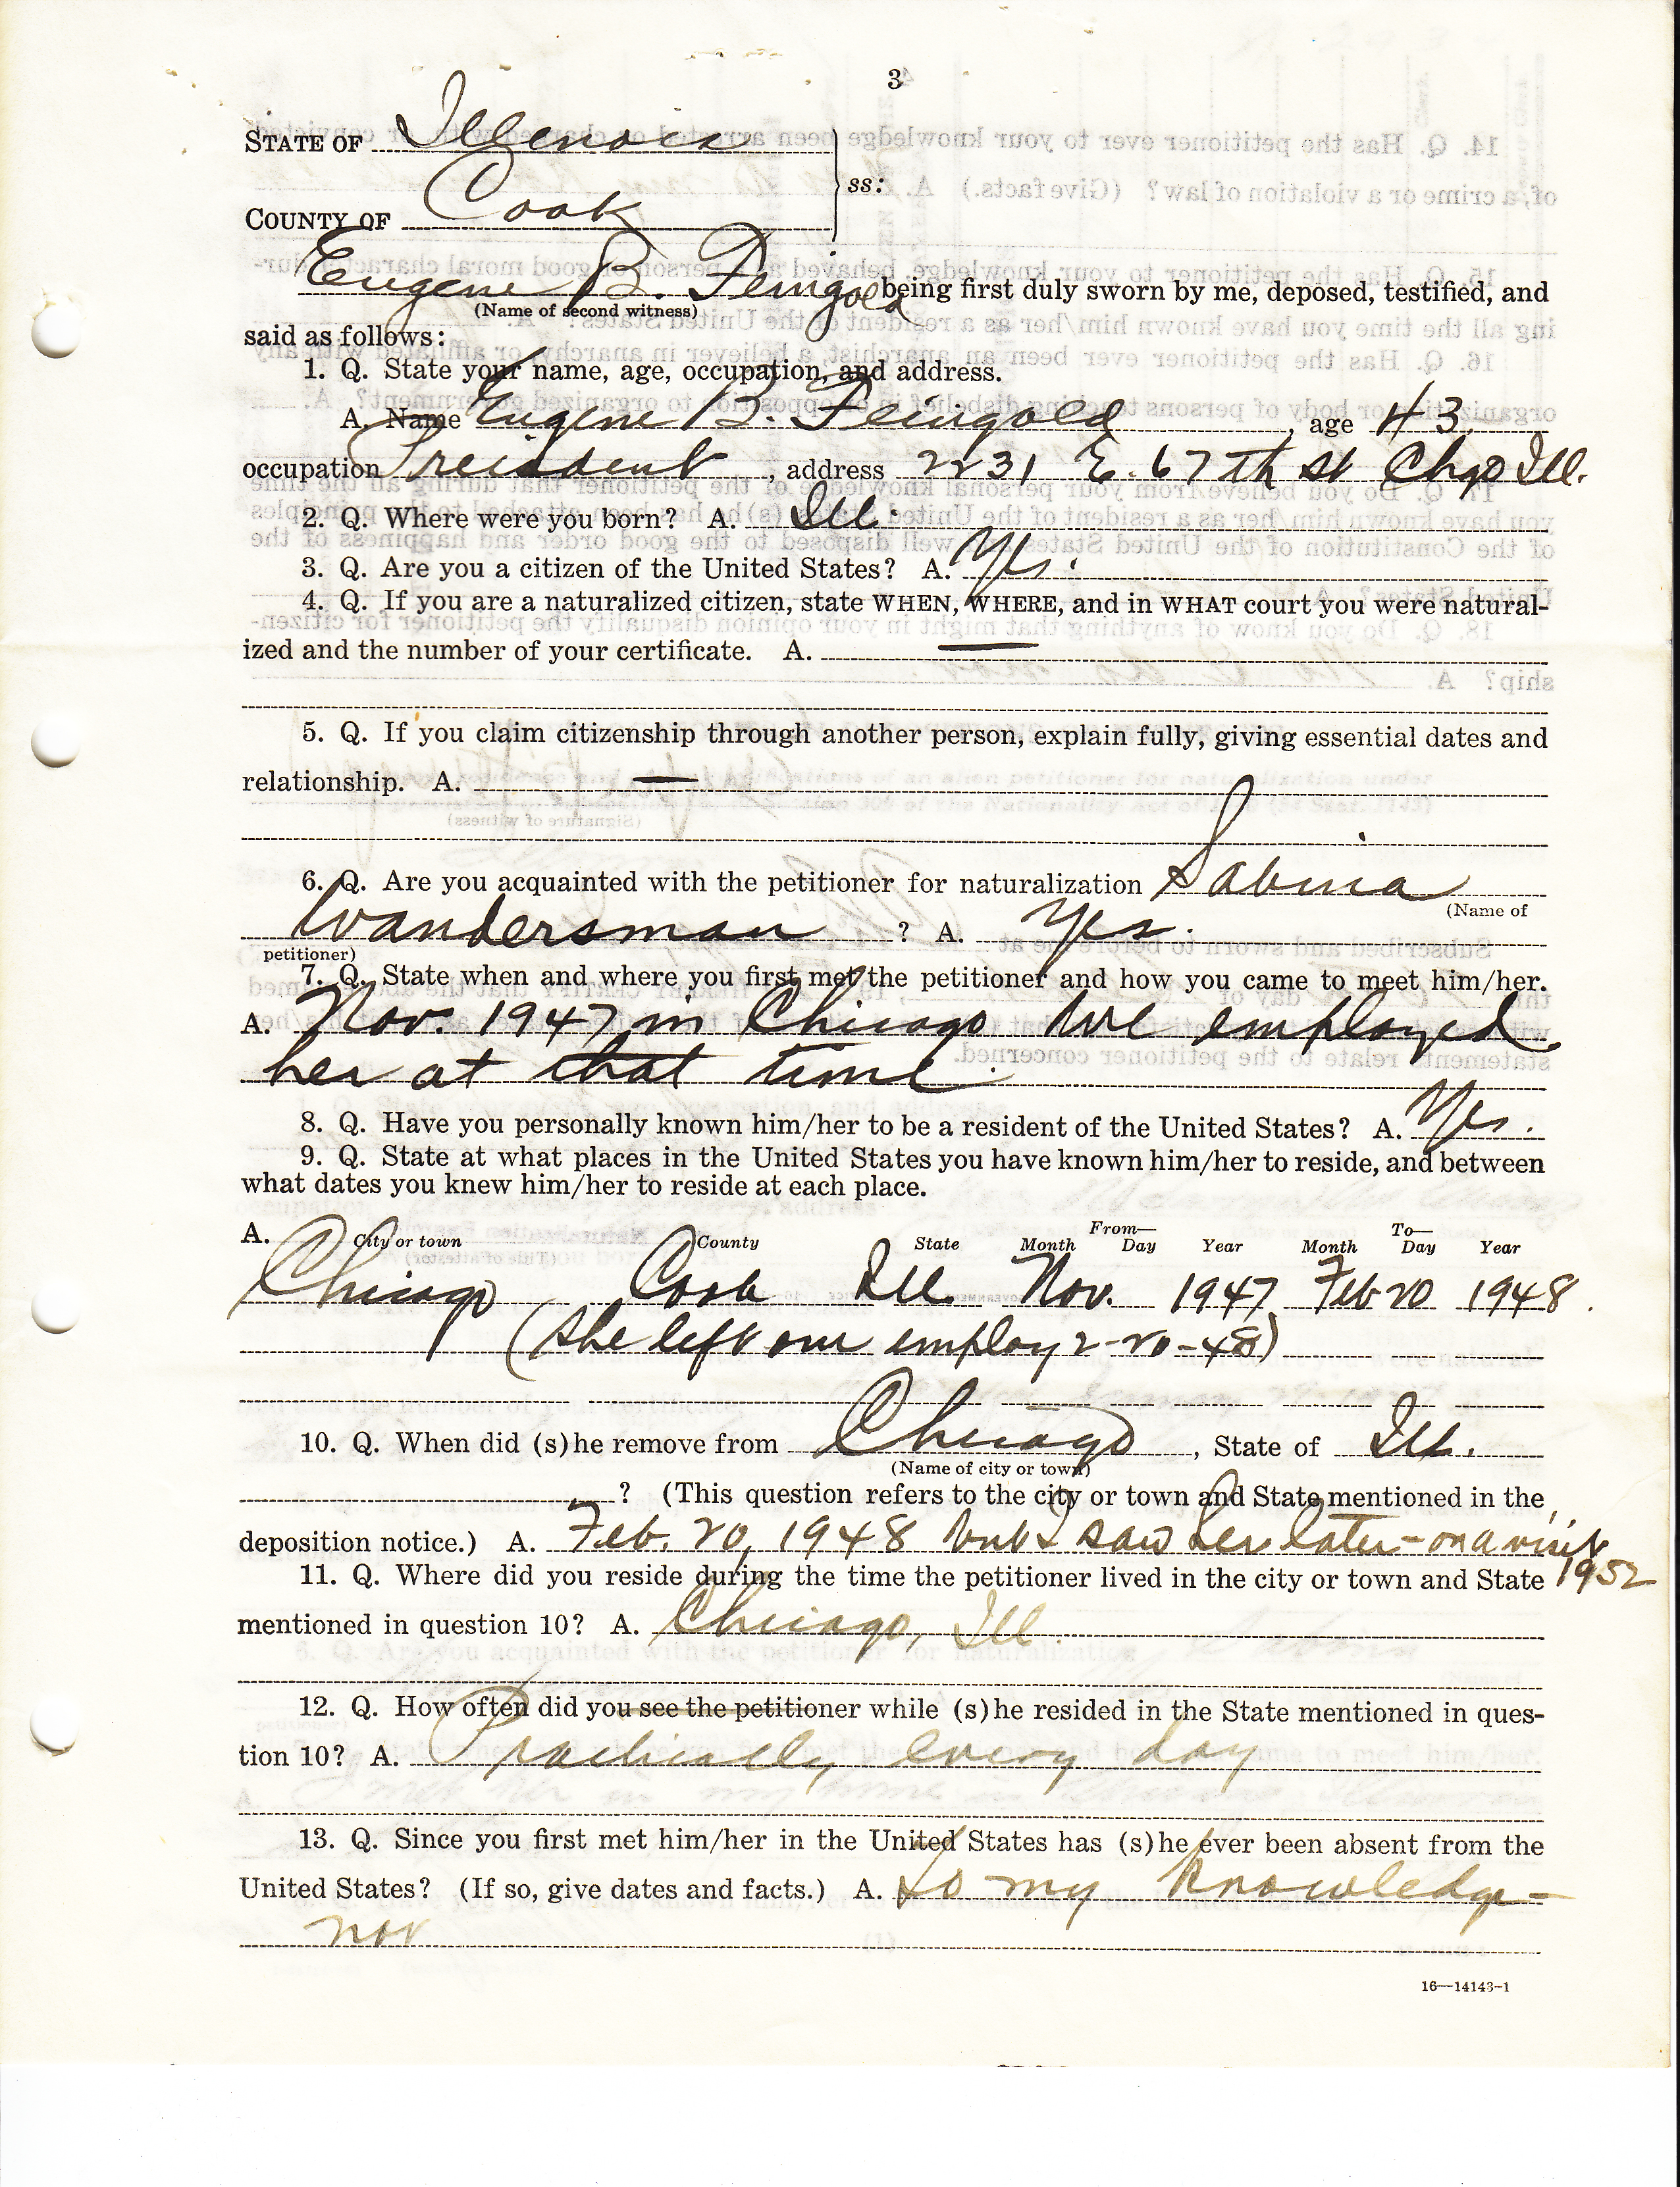 3
STATE OF Illinois
ss:
COUNTY OF Cook
Eugene B. Feingold being first duly sworn by me, deposed, testified, and
(Name of second witness)
said as follows:
1. Q. State your name, age, occupation, and address.
A. Name Eugene B. Feingold, age 43
occupation President, address 2231 E. 67th St Chgo Ill.
2. Q. Where were you born? A. Ill.
3. Q. Are you a citizen of the United States? A. Yes.
4. Q. If you are a naturalized citizen, state WHEN, WHERE, and in WHAT court you were natural-
ized and the number of your certificate. A. —
5. Q. If you claim citizenship through another person, explain fully, giving essential dates and
relationship. A. —
6. Q. Are you acquainted with the petitioner for naturalization Sabina
(Name of
Wandersman ? A. Yes.
petitioner)
7. Q. State when and where you first met the petitioner and how you came to meet him/her.
A. Nov. 1947 in Chicago We employed
her at that time.
8. Q. Have you personally known him/her to be a resident of the United States? A. Yes.
9. Q. State at what places in the United States you have known him/her to reside, and between
what dates you knew him/her to reside at each place.
From— To—
A. City or town County State Month Day Year Month Day Year
Chicago Cook Ill. Nov. 1947 Feb 20 1948.
(She left our employ 2-20-48)
10. Q. When did (s)he remove from Chicago, State of Ill.
(Name of city or town)
? (This question refers to the city or town and State mentioned in the
deposition notice.) A. Feb. 20, 1948 but I saw her later - on a visit
1952
11. Q. Where did you reside during the time the petitioner lived in the city or town and State
mentioned in question 10? A. Chicago, Ill.
12. Q. How often did you see the petitioner while (s)he resided in the State mentioned in ques-
tion 10? A. Practically every day
13. Q. Since you first met him/her in the United States has (s)he ever been absent from the
United States? (If so, give dates and facts.) A. to my knowledge -
not
16—14143-1